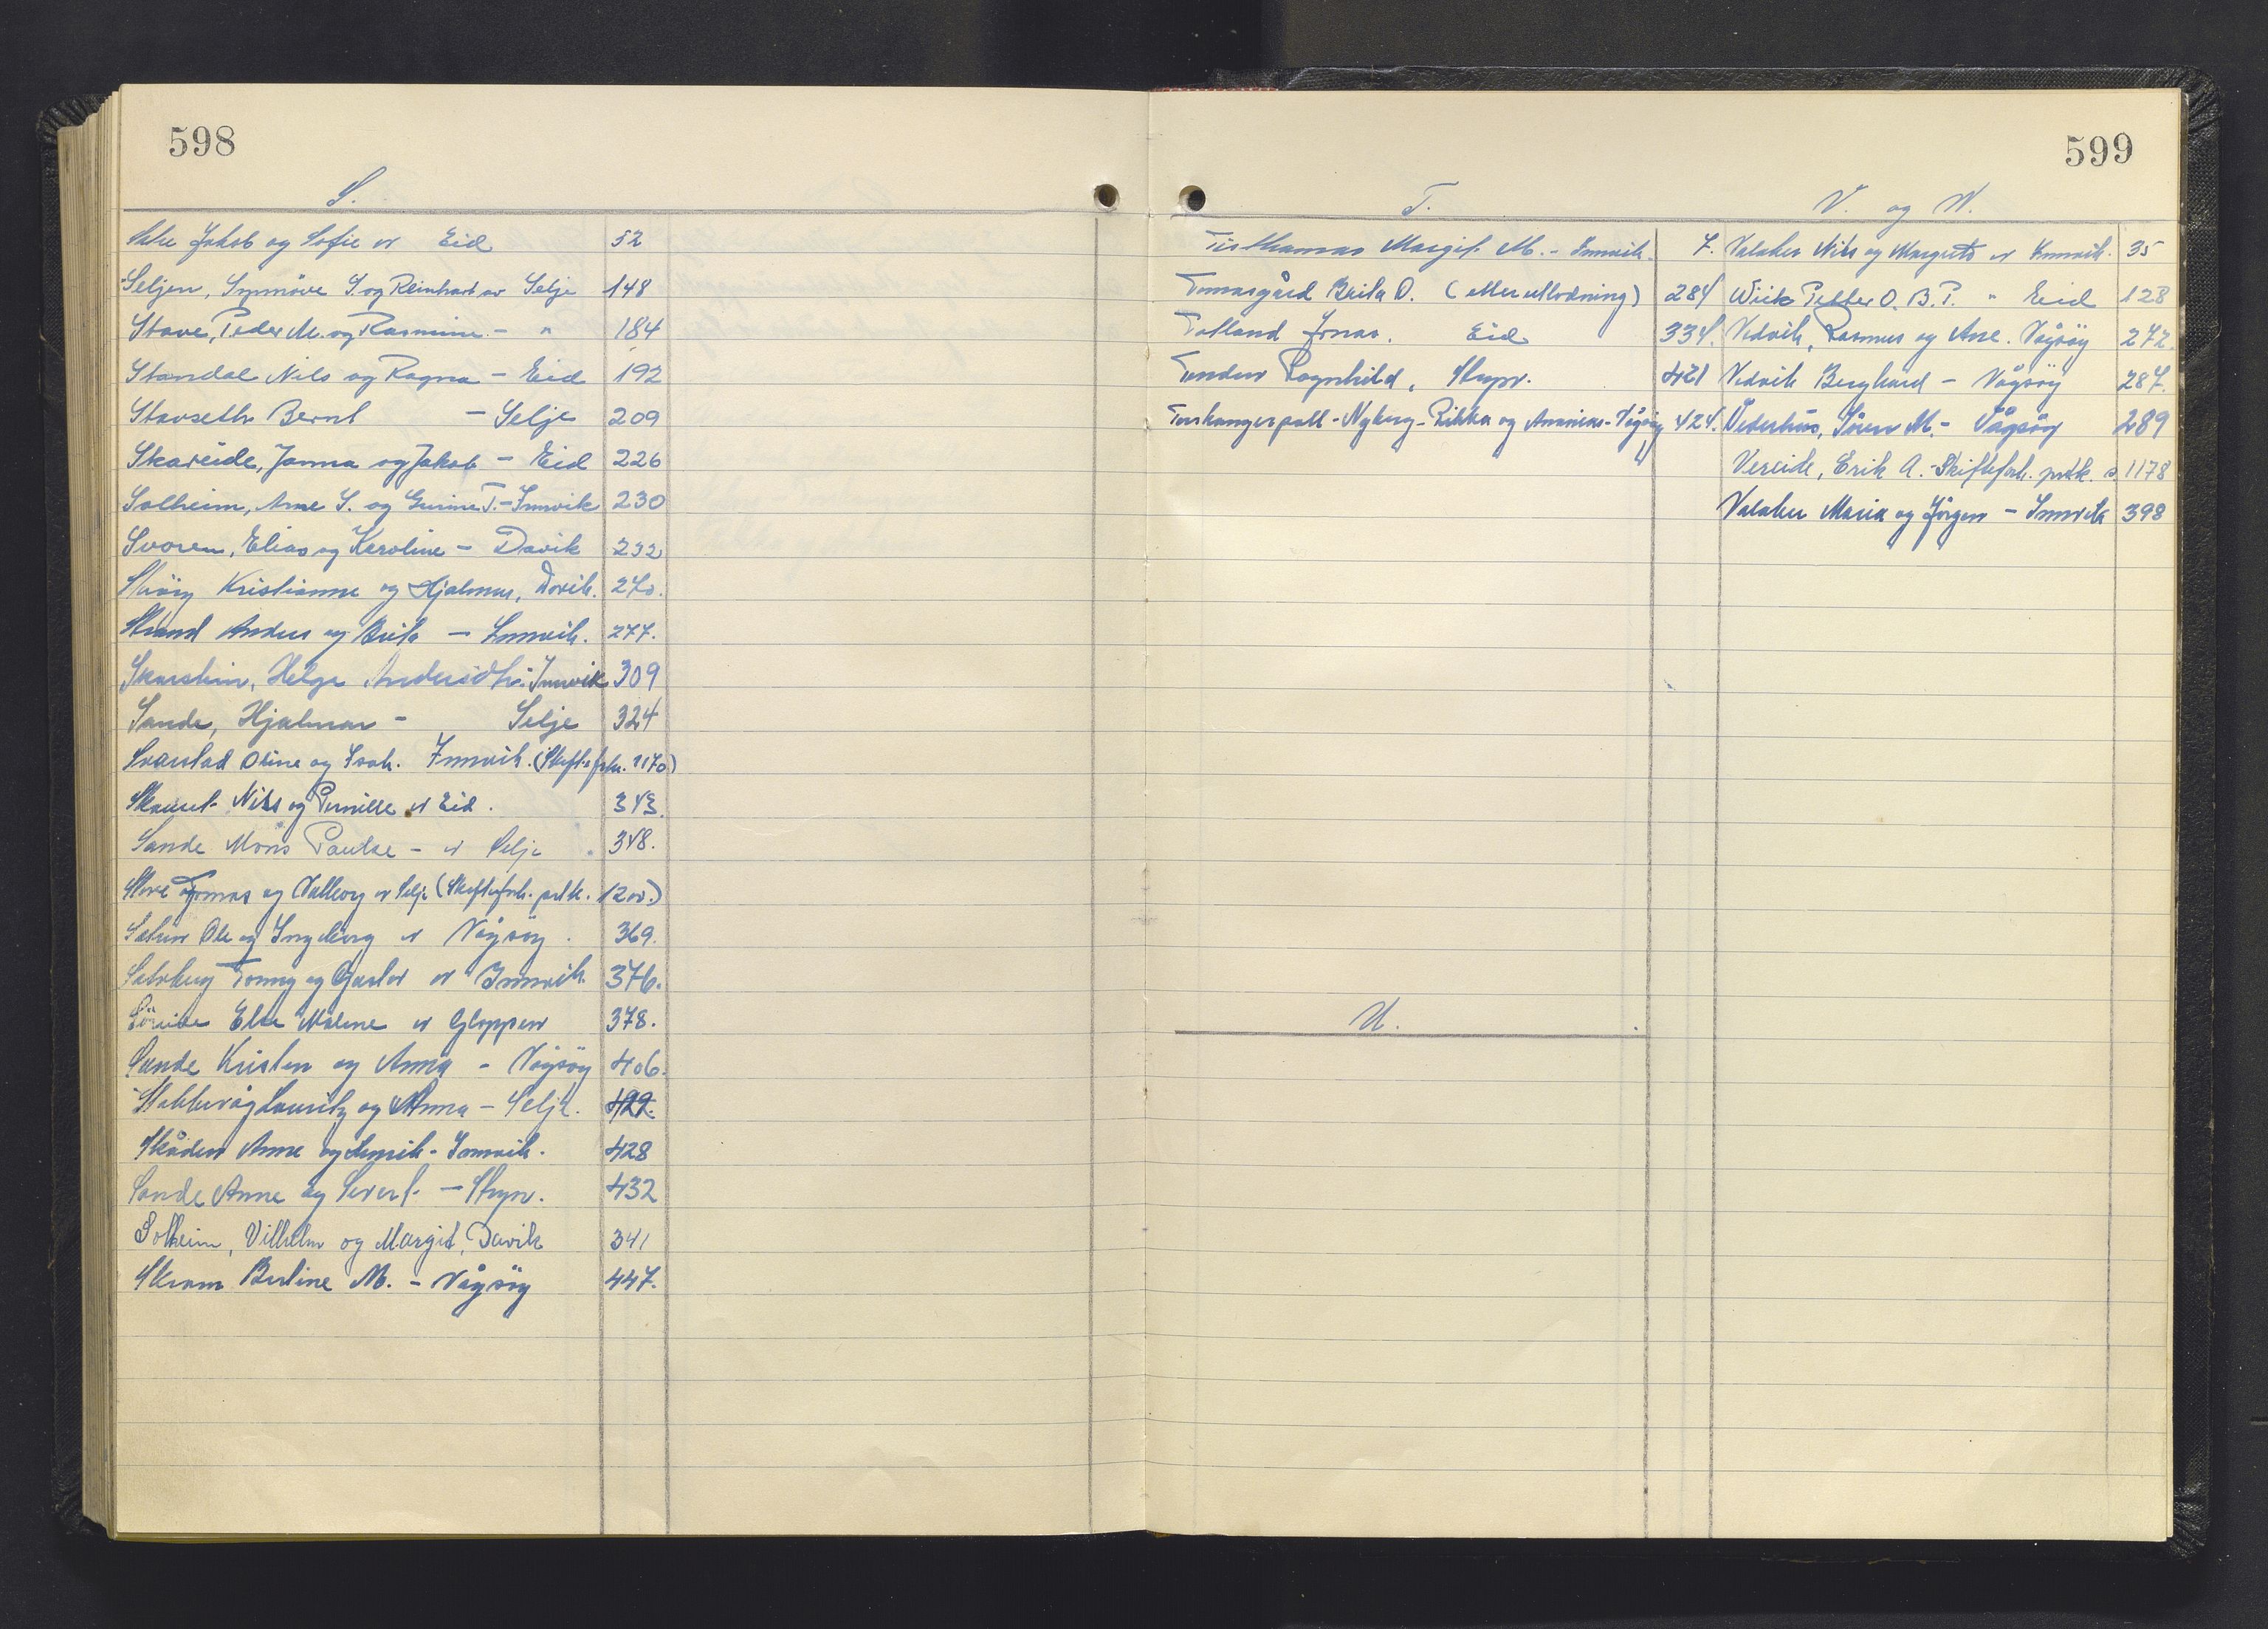 598
S.
Jakob og Sofie av Eid 52
Seljen, Synnöve S. og Reinhart av Selje 148
Stave, Peder M. og Rasmine - " 184
Standal Nils og Ragna - Eid 192
Stavseth Bernt - Selje 209
Skareide, Janna og Jakob - Eid 226
Solheim, Arne S. og Gurine T. - Innvik 230
Svoren, Elias og Karoline - Davik 232
Kristianne og Hjalmar, Davik. 270.
Strand Anders og Brita - Innvik. 277.
Skarstein, Helge Andersdtr. Innvik 309
Sande, Hjalmar - Selje 324
Svarstad Oline og Isak. Innvik. (Skift.forh. 1170)
Skauret Nils og Pernille av Eid. 343.
Sande Mons Paulse - av Selje 348.
Tomas og Valborg av Selje (Skifteforh. prtk. 1200.)
Sætren Ole og Ingeborg av Vågsöy. 369.
Tommy og Gustav av Innvik. 376.
Söreide Else Malene av Gloppen 378.
Sande Kristen og Anna - Vågsöy 406.
Stokkevåg Lauritz og Anna - Selje. 422.
Skåden Anne og Henrik - Innvik. 428
Sande Anne og Sivert - Stryn. 432
Solheim, Vilhelm og Margit, Davik 341
Skram Berline M. - Vågsöy 447.
599
T.
Tisthamar Margit M. - Innvik. 7.
Tomasgård Brita O. (etter utlodning) 284
Totland Jonas. Eid 334.
Ragnhild, Stryn. 421
Torskangerpoll - Nyberg - Rikka og - Vågsöy 424.
U.
V. og W.
Valaker Nils og Margreta av Innvik. 35
Wiik Petter O. B. P. " Eid 128
Vedvik, Rasmus og Ane. Vågsöy 272.
Vedvik Berghard - Vågsöy 287.
Vederhus, Sören M. - Vågsöy 289
Vereide, Erik A. - Skifteforh. prtk. s. 1178
Valaker Maria og Jörgen - Innvik 398